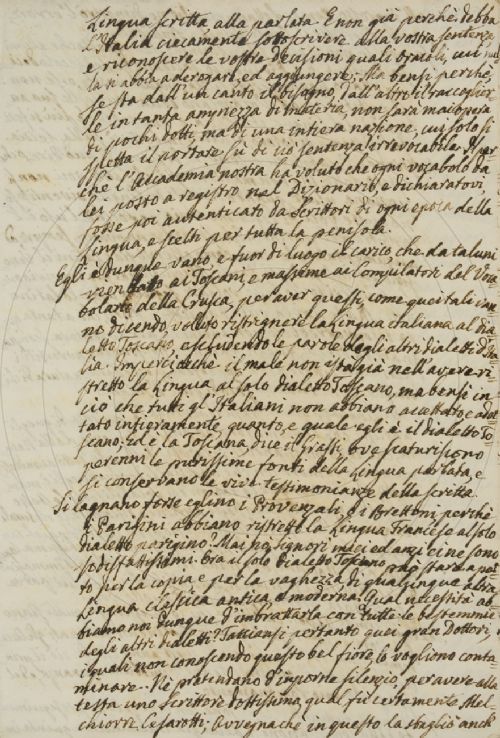 Lingua scritta alla parlata. E non già perchè debba
l'Italia ciecamente sottoscrivere alla vostra sentenza
e riconoscere le vostre decisioni quali oracoli, cui nul
la si abbia a derogare, ed aggiungere; Ma bensì perchè,
se sta dall'un canto il bisogno, dall'altro il raccoglier
le in tanta ampiezza di materia, non sarà mai opera
di pochi dotti, ma di una intiera nazione, cui solo si
spetta il portare sù di ciò sentenza irrevocabile. E per
chè l'Accademia nostra ha voluto che ogni vocabolo da
lei posto a registro nel Dizionario, e dichiaratovi,
fosse poi autenticato da Scrittori di ogni epoca della
lingua, e scelti per tutta la penisola.
Egli è dunque vano e fuor di luogo il carico che da taluni
vien dato ai Toscani, e massime ai Compilatori del Voca
bolario della Crusca, per aver questi, come quei tali van
no dicendo, voluto ristrignere la lingua italiana al dia
letto Toscano, escludendo le parole degli altri dialetti d'Ita
lia. Imperciocchè il male non istà già nell'avere ri
stretto la lingua al solo dialetto Toscano, ma bensì in
ciò che tutti gl'Italiani non abbiano accettato e adot
tato intieramente quanto, e quale egli è il dialetto To
scano; ed è la Toscana, dice il Grassi, ove scaturiscono
perenni le purissime fonti della lingua parlata, e
si conservano le vive testimonianze della scritta.
Si lagnano forse eglino i Provenzali, e i Brettoni perchè
i Parigini abbiano ristretto la lingua Francese al solo
dialetto parigino? Mai nò, Signori miei, ed anzi ei ne sono
sodisfattissimi. Ora il solo dialetto Toscano può stare a pet
to per la copia e per la vaghezza di qualunque altra
lingua classica antica e moderna. Qual necessità ab
biamo noi dunque d'imbrattarla con tutte le bestemmie
degli altri dialetti? Tacciansi pertanto quei gran Dottori,
i quali non conoscendo questo bel fiore lo vogliono conta
minare. Nè pretendano d'imporne silenzio, per avere alla
testa uno Scrittore dottissimo, qual fù certamente Mel-
chiorre Cesarotti; Avvegnachè in questo la sbagliò anch'